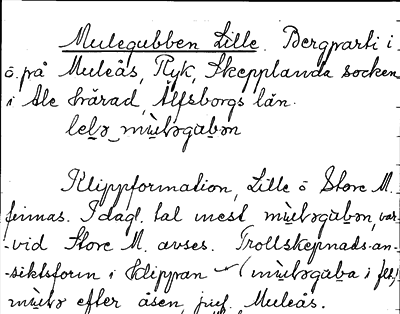 Mulegubben Lille. Bergparti i
ö. på Muleås, Ryk, Skepplanda socken
i Ale härad, Älfsborgs län.
lɛlə mùləgubən
Klippformation, Lille ö Store M.
finnas. I dagl. tal mest mùləgubən, var-
-vid Store M. avses. Trollskepnads-an-
-siktsform i klippan – (mùləgubα i flt)
mùlə efter åsen, juf. Muleås.